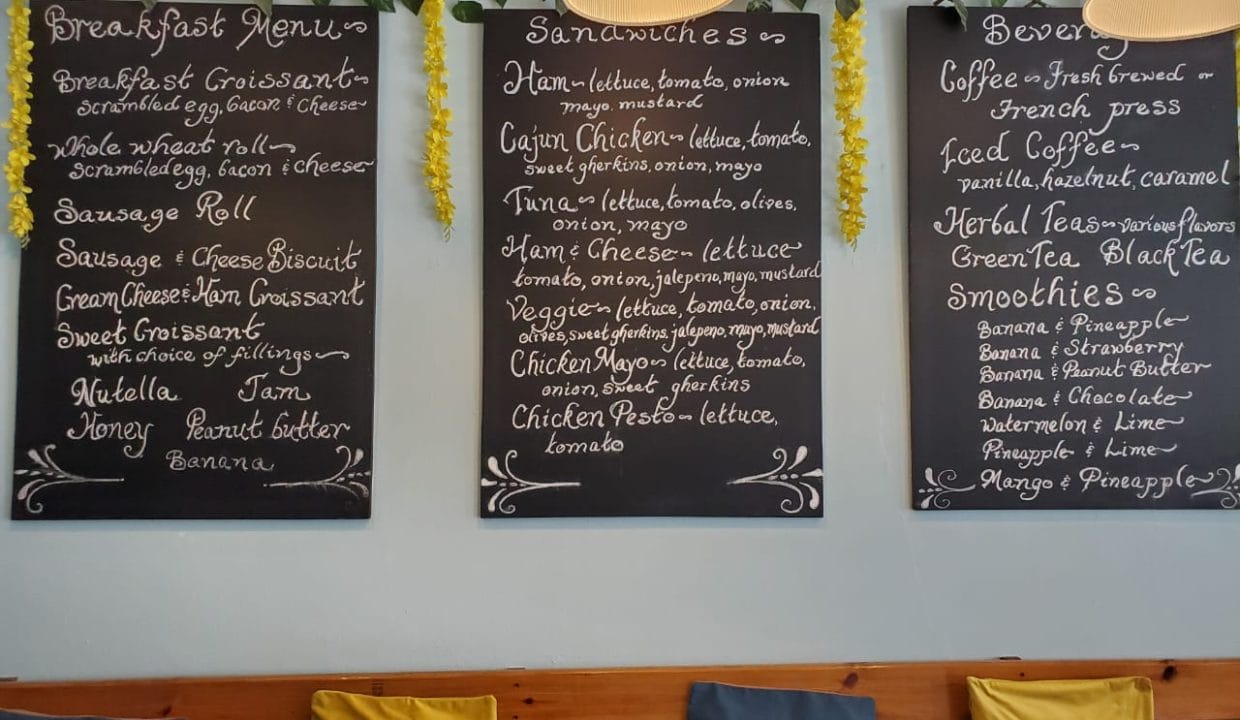 Breakfast Menu
Breakfast Croissant
scrambled egg, bacon & cheese
Whole wheat roll
scrambled egg, bacon & cheese
Sausage Roll
Sausage & Cheese Biscuit
Cream Cheese & Ham Croissant
Sweet Croissant
with choice of fillings
Nutella Jam
Honey Peanut butter
Banana
Sandwiches
Ham ~ lettuce, tomato, onion
mayo, mustard
Cajun Chicken ~ lettuce, tomato,
sweet gherkins, onion, mayo
Tuna ~ lettuce, tomato, olives,
onion, mayo
Ham & Cheese ~ lettuce
tomato, onion, jalepeno, mayo, mustard
Veggie ~ lettuce, tomato, onion,
olives, sweet gherkins, jalepeno, mayo, mustard
Chicken Mayo ~ lettuce, tomato,
onion, sweet gherkins
Chicken Pesto ~ lettuce,
tomato
Coffee ~ Fresh brewed or
French press
Iced Coffee ~
vanilla, hazelnut, caramel
Herbal Teas ~ various flavors
Green Tea Black Tea
Smoothies ~
Banana & Pineapple
Banana & Strawberry
Banana & Peanut Butter
Banana & Chocolate
Watermelon & Lime
Pineapple & Lime
Mango & Pineapple